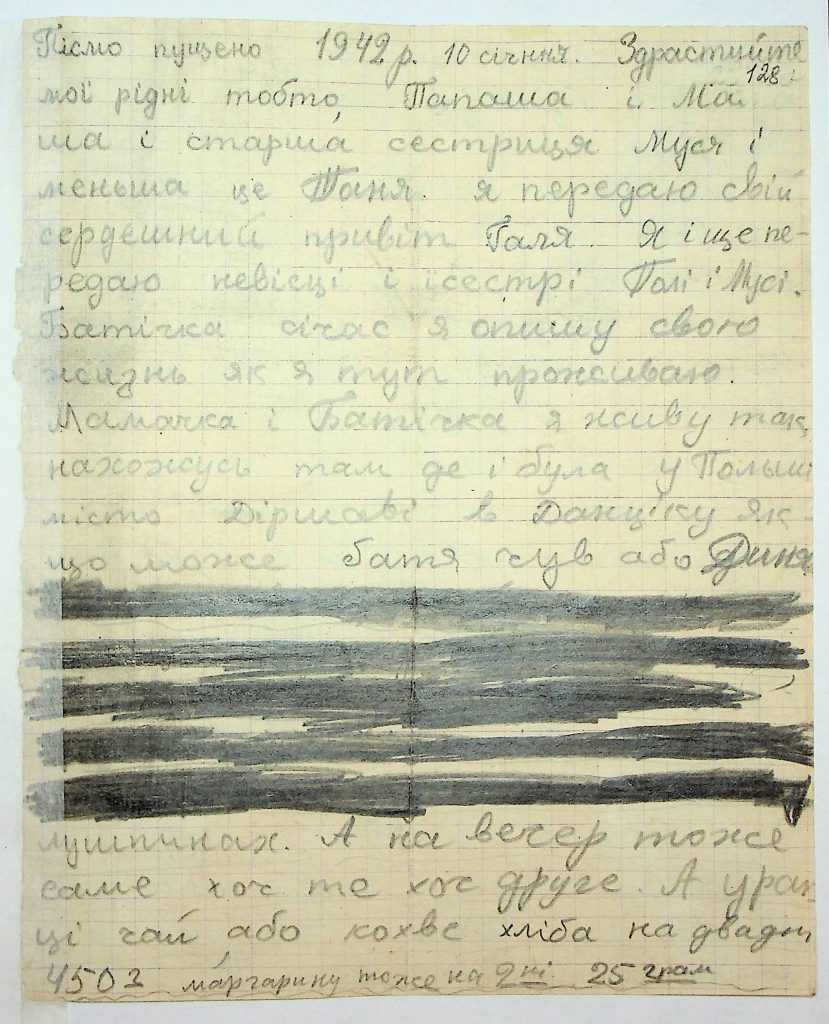 Пісмо пущено 1942 р. 10 січння. Здраствуйте
128
мої рідні тобто, Папаша і Ма
ша і старша сестриця Муся і
меньша це Таня. я передаю свій
сердешний привіт Галя. Я і ще пе-
редаю невісці і їсестрі Полі і Мусі.
Батічка січас я опишу свою
жизнь як я тут проживаю.
Мамачка і Батічка я живу так,
нахожусь там де і була у Польші
місто Діршаві в Данціку як-
що може батя чув або Диня
лушпинах. А на вечер тоже
саме хоч те хоч друге. А уран
ці чай або кохве хліба на двадні
450 г маргарину тоже на 2 дні 25 грам